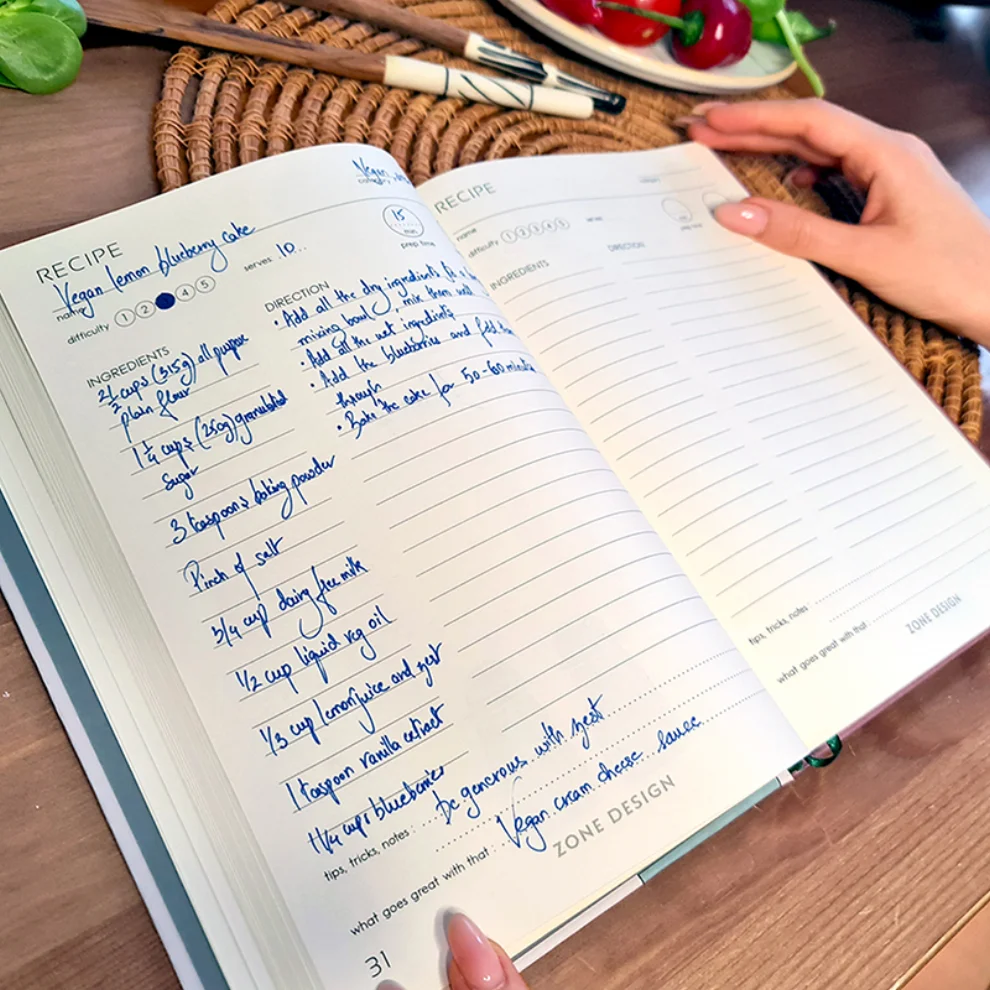 Vegan
category
RECIPE
Vegan lemon blueberry cake
name
serves 10...
15
min
prep time
difficulty 1 2 4 5
INGREDIENTS
2 1/2 cups (315g) all purpose
plain flour
1 1/4 cups (250g) granulated
Sugar
3 teaspoons baking powder
Pinch of salt
3/4 cup dairy free milk
1/2 cup liquid veg oil
1/3 cup lemon juice and zest
1 teaspoon vanilla extract
1 1/4 cups blueberries
DIRECTION
• Add all the dry ingredients
mixing bowl, mix them well
• Add all the wet ingredients
• Add the blueberries and fold
through
• Bake the cake for 50-60 minutes
tips, tricks, notes : be generous with zest
what goes great with that : Vegan cream cheese sauce
ZONE DESIGN
31
RECIPE
name
difficulty 1 2 3 4 5
INGREDIENTS
DIRECTION
tips, tricks, notes
what goes great with that :
ZONE DESIGN